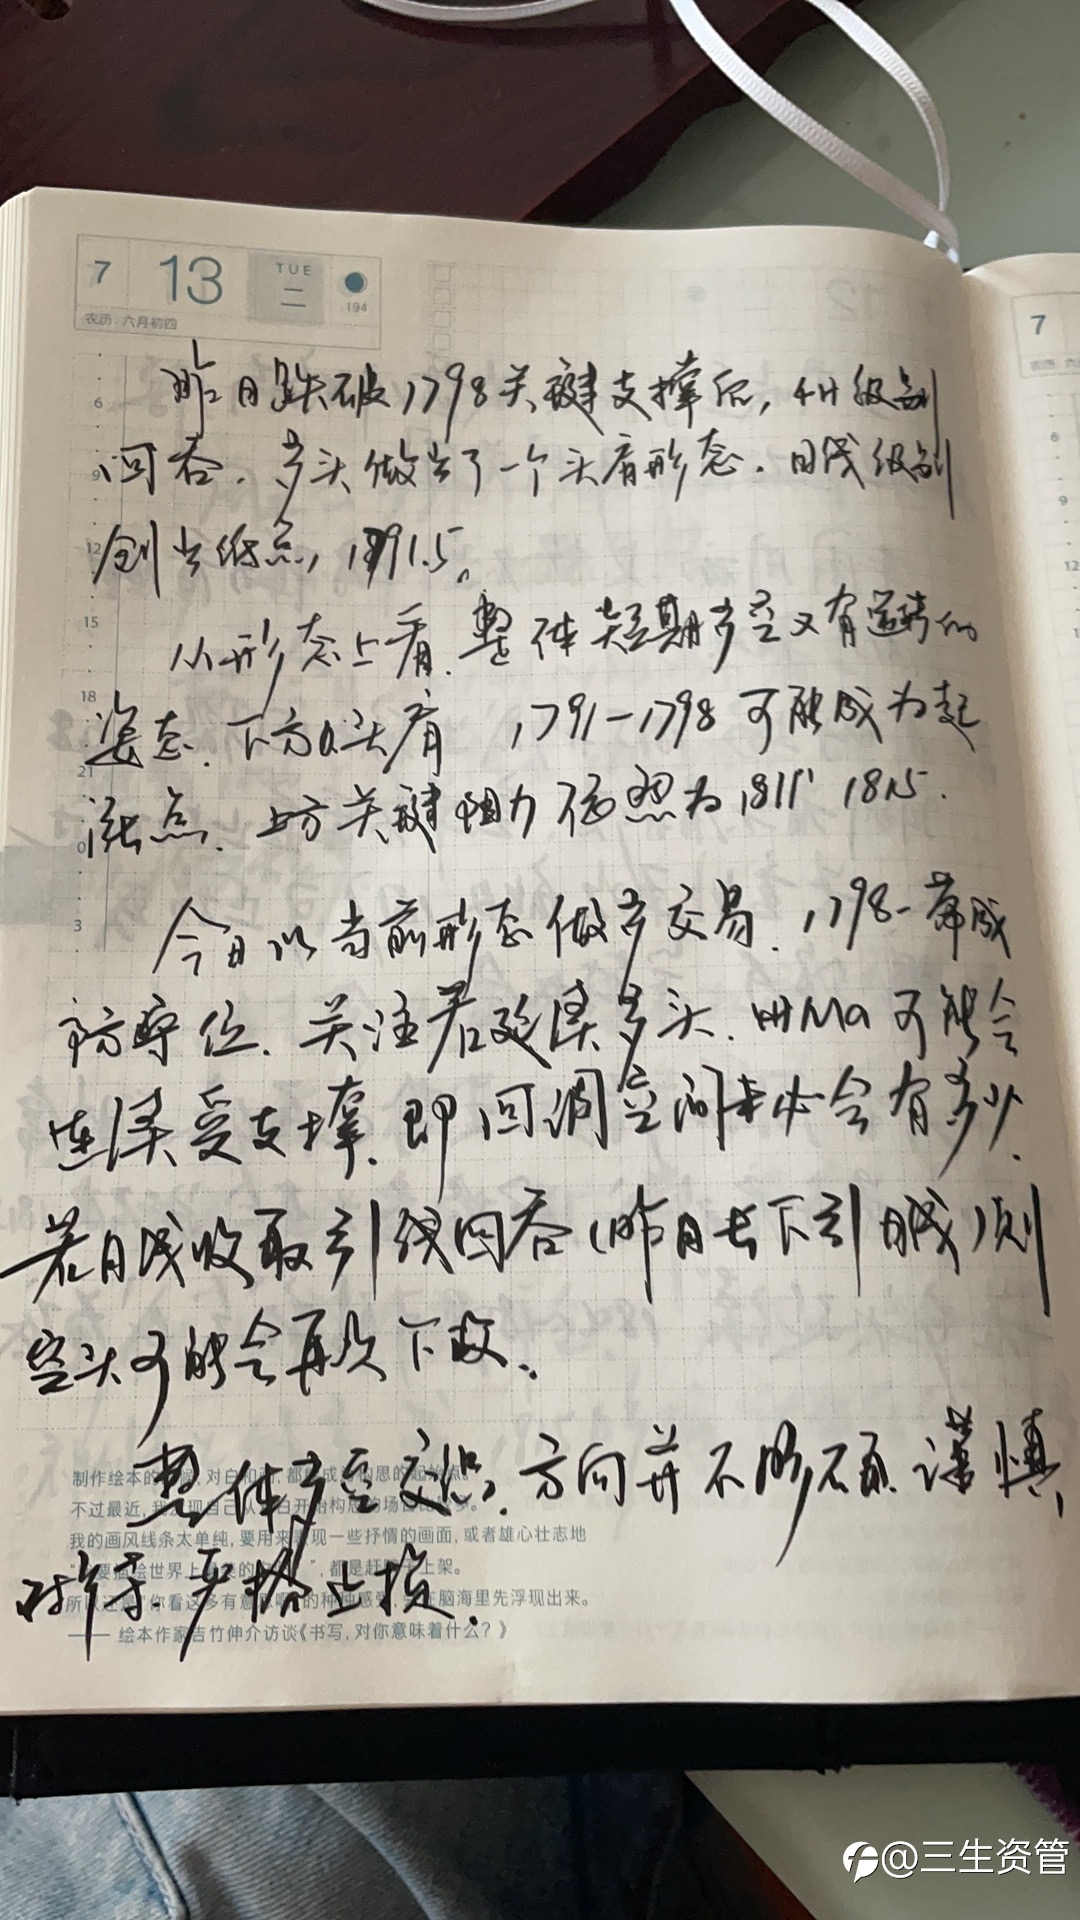 7 13 TUE 二 194
农历.六月初四
7
昨日跌破1798关键支撑后，4H级别
6
回吞.多头做出了一个头肩形态.日线级别
9
创出低点，1791.5。
12
从形态上看.整体短期多空又有逆转的
15
姿态.下方头肩 1791-1798可能成为起
18
21
涨点.上方关键阻力依照为1811 1815.
0
今日以当前形态做多交易.1798一带成
3
防守位.关注若延续多头.4HMa可能会
连续受支撑.即回调空间未必会有多少.
若日线收取引线回吞(昨日长下引日线)则
空头可能会再次下放.
整体多空交态.方向并不明確.谨慎
对待.严格止损.
制作绘本的 对白和 都 成 构思的起始点。
不过最近，我 现自己从 白开始构思的场
我的画风线条太单纯，要用来表现一些抒情的画面，或者雄心壮志地
要描绘世界上 的 ”，都是赶 上架。
所以还是“你看这 多有意思 ”的种种感受， 在脑海里先浮现出来。
—— 绘本作家吉竹伸介访谈《书写，对你意味着什么？》
7
6
9
12
@三生资管